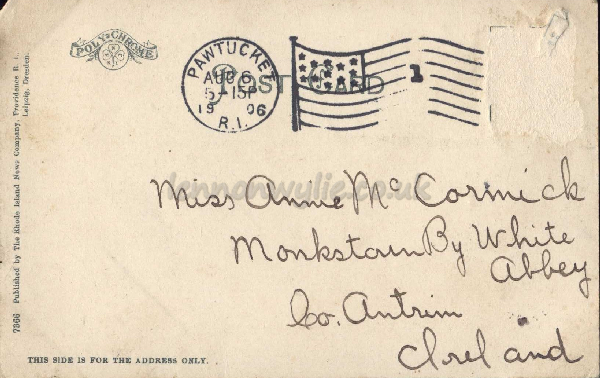 POLY-CHROME
PAWTUCKET
AUG 6
5-15P
19 06
R.I.
1
POST CARD
lennonwylie.co.uk
Miss Annie McCormick
Monkstown By White
Abbey
Co. Antrim
Ireland
7366 Published by The Rhode Island News Company, Providence R. I.
Leipzig, Dresden.
THIS SIDE IS FOR THE ADDRESS ONLY.